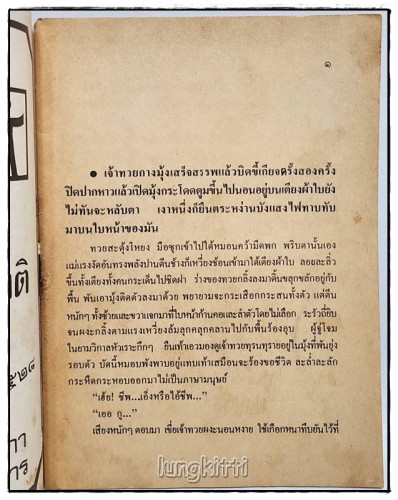 ๑
● เจ้าทวยกางมุ้งเสร็จสรรพแล้วบิดขี้เกียจครั้งสองครั้ง
ปิดปากหาวแล้วเปิดมุ้งกระโดดตูมขึ้นไปนอนอยู่บนเตียงผ้าใบยัง
ไม่ทันจะหลับตา เงาหนึ่งก็ยืนตระหง่านบังแสงไฟทาบทับ
มาบนใบหน้าของมัน
ทวยสะดุ้งโหยง มือซุกเข้าไปใต้หมอนคว้ามีดพก พริบตานั้นเอง
แม่แรงงัดอันทรงพลังปานตีนช้างก็เหวี่ยงช้อนเข้ามาใต้เตียงผ้าใบ ลอยละลิ่ว
ขึ้นทั้งเตียงทั้งคนกระเด็นไปชิดฝา ร่างของทวยกลิ้งลงมาดิ้นขลุกขลักอยู่กับ
พื้น พันเอามุ้งติดตัวลงมาด้วย พยายามจะกระเสือกกระสนทั้งตัว แต่ตีน
หนักๆ ทั้งซ้ายและขวาแจกมาที่ใบหน้าก้านคอและลำตัวโดยไม่เลือก ระรัวถี่ยิบ
จนผงะกลิ้งตามแรงเหวี่ยงล้มลุกคลุกคลานไปกับพื้นร้องอุบ ผู้จู่โจม
ในยามวิกาลหัวเราะกึกๆ ยืนเท้าเอวมองดูเจ้าทวยทุรนทุรายอยู่ในมุ้งที่พันยุ่ง
รอบตัว บัดนี้หมอบพังพาบอยู่แทบเท้าเสมือนจะร้องขอชีวิต ละล่ำละลัก
กระหืดกระหอบออกมาไม่เป็นภาษามนุษย์
“เฮ้ย! ชีพ...เอ็งหรือไอ้ชีพ...”
“เออ กู...”
เสียงหนักๆ ตอบมา เขี่ยเจ้าทวยผงะนอนหงาย ใช้เกือกหนาทึบยันไว้ที่
lungkitti
ติ
๕๒๘
การ